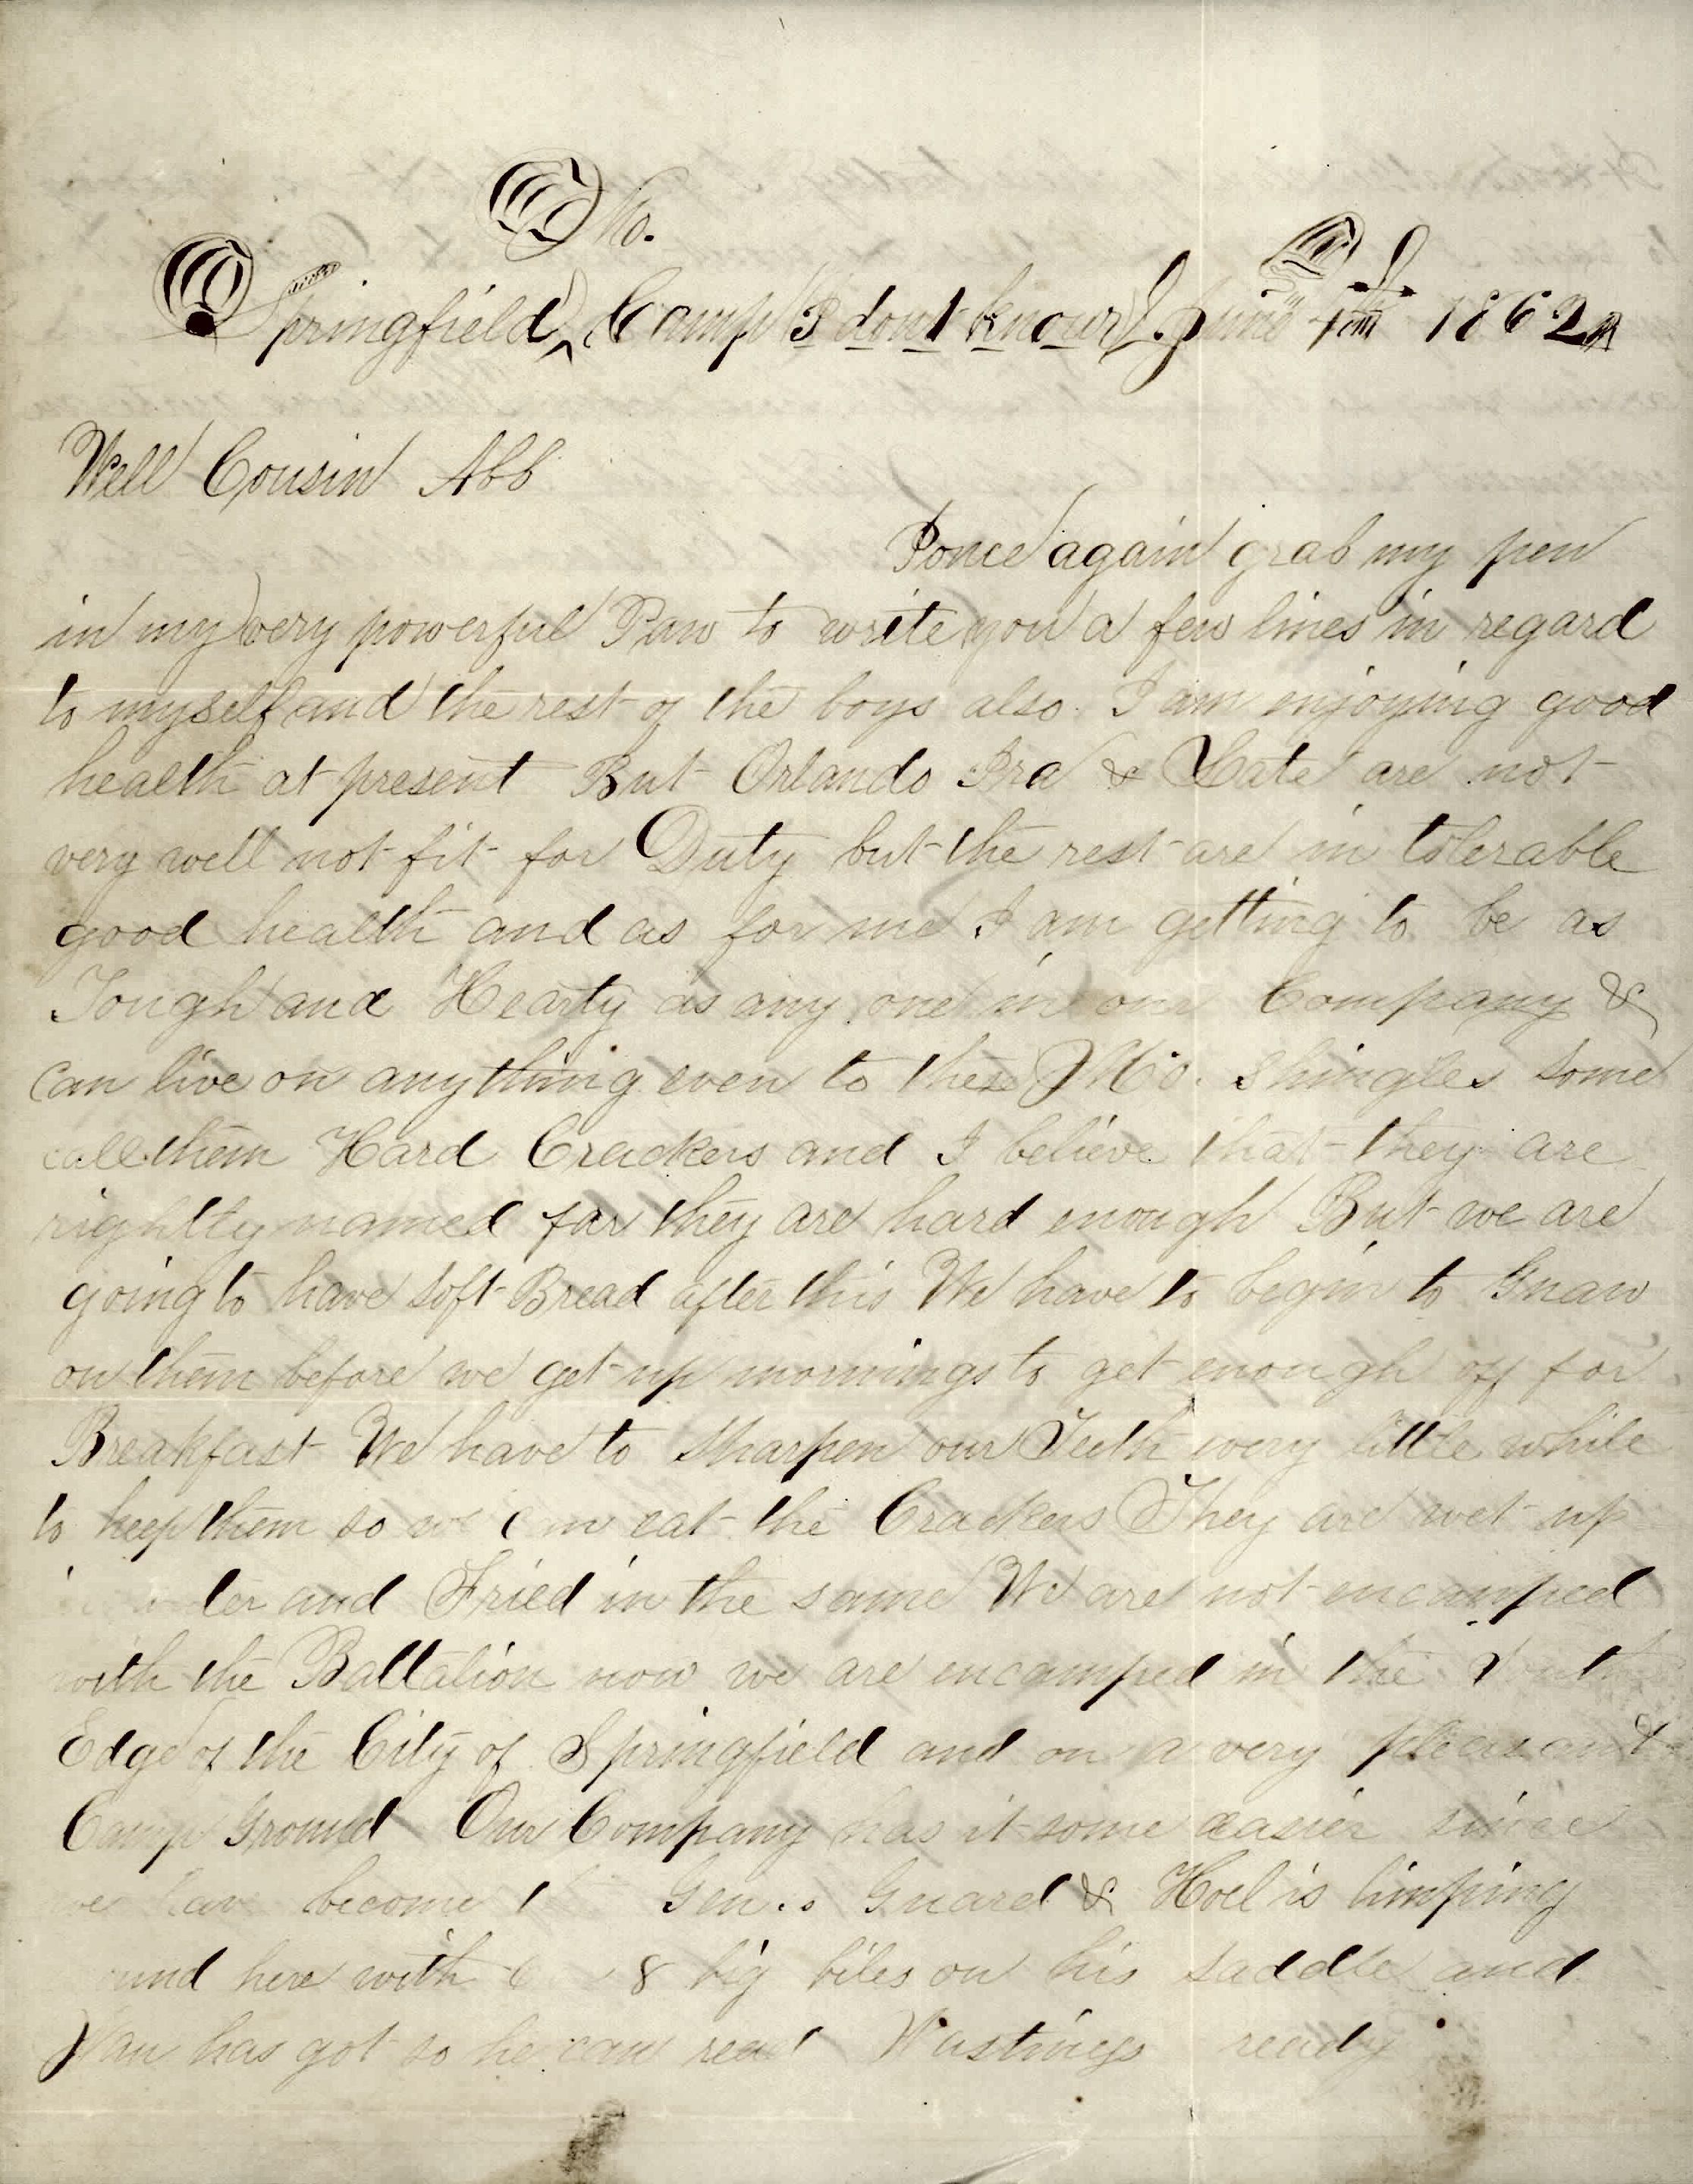 Mo.
Springfield, ^ Camp I dont know, June 1862
Well Cousin Abb
I once again grab my pen
in my very powerful Paw to write you a few lines in regard
to myself and the rest of the boys also. I am enjoying good
health at present But Orlando Ira & Late are not
very well not fit for Duty but the rest are in tolerable
good health and as for me I am getting to be as
Tough and Hearty as any one in our Company &
can live on anything even to these Mo. Shingles some
call them Hard Crackers and I believe that they are
rightly named for they are hard enough But we are
going to have soft Bread after this We have to begin to Gnaw
on them before we get up mornings to get enough off for
Breakfast We have to sharpen our Teeth every little while
to keep them so we can eat the Crackers They are wet up
and Fried in the same We are not encamped
with the Battalion now we are encamped in the South
Edge of the City of Springfield and on a very pleasant
Camp Ground Our Company has it some easier since
we have become Gen.s Guard & Hoel is limping
here with 8 big biles on his saddle and
Van has got so he can read ready